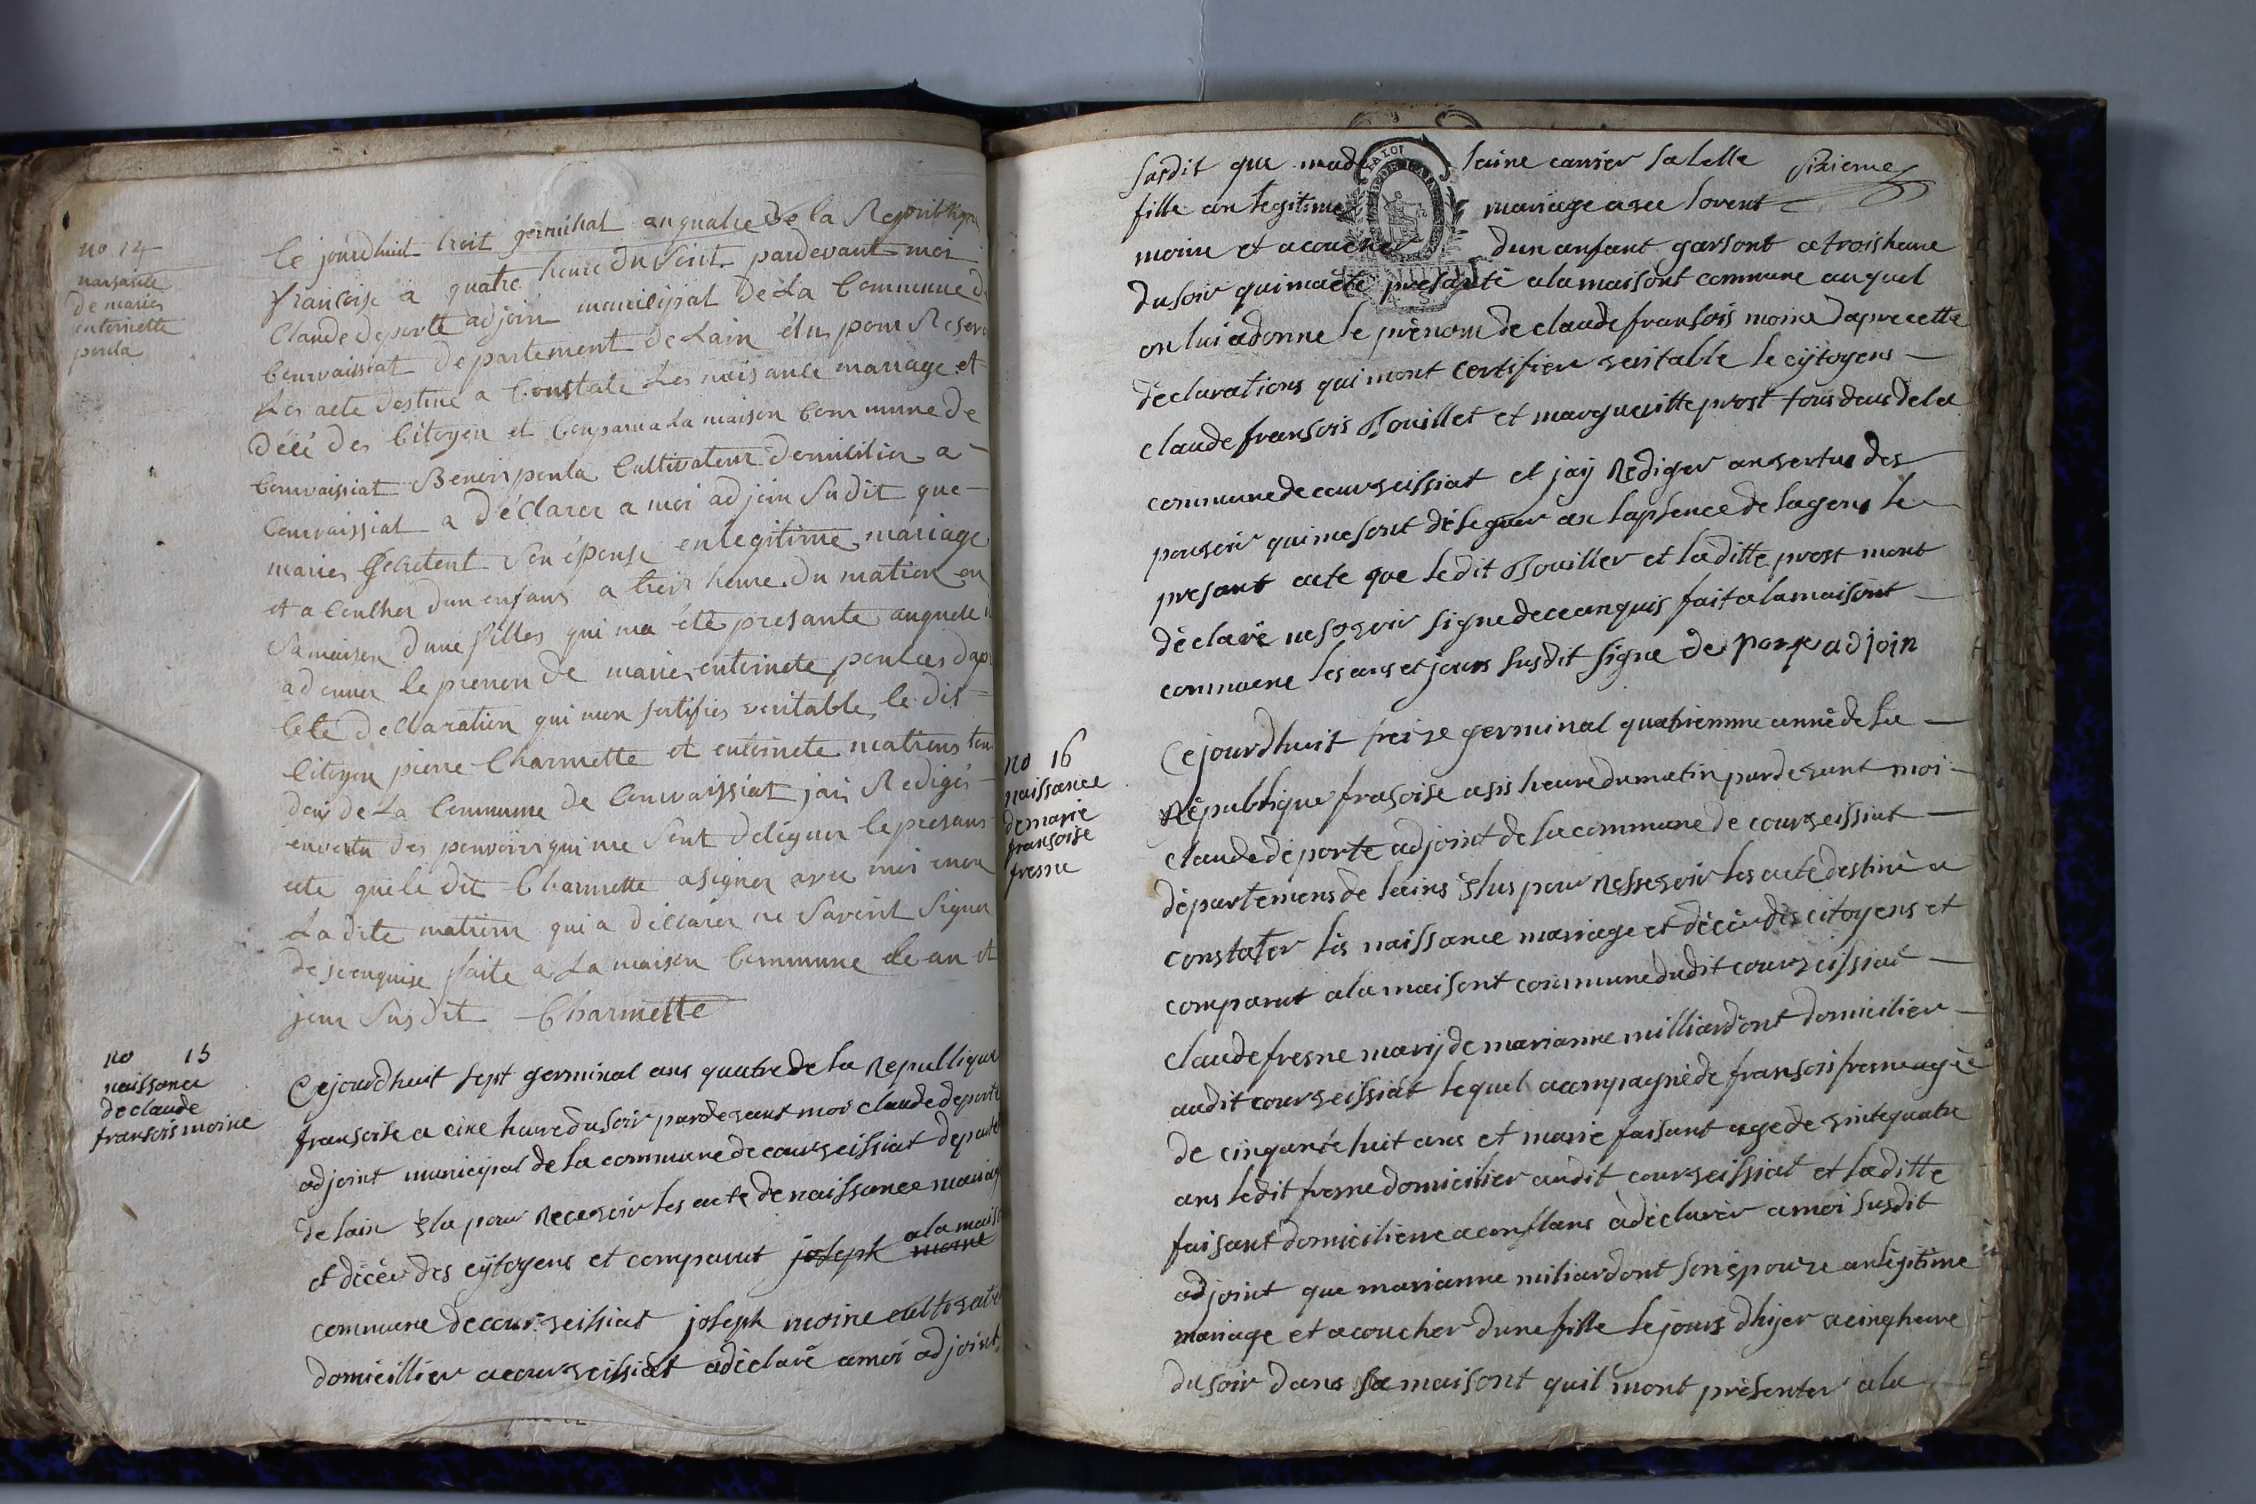 no 14
naissance
de marie
entoinette
ponla
le jourdhuit troit germinal an quatre de la Republique
francoise a quatre heure du soirt pardevant moi
Claude deporte adjoin municipal de la Commune de
Courvaissiat departement de Lain élus pour Reservoir
Les acte destine a Constate Les naisance mariage et
décé des Citoyen et Conparu a La maison Commune de
Courvaissiat Benois ponla Cultivateur domicilier a
Courvaissiat a déClarer a moi adjoin Sudit que
marie son épouse en legitime mariage
et a Coucher dun enfans a trois heure du matin en
Sa maison dune filles qui ma été presante auquele
adonner le prenon de marie entoinete ponla
Cete declaration qui mon sertifier veritable le dis
Citoyen pierre Charmette et entoinete matrons
deu de La Commune de Courvaissiat jai Rediger
en vertu des pouvoirs qui me sont deléguer le presans
acte que le dit Charmette a signer avec moi
La dite matron qui a déClarer ne Savoir Signer
de se enquise faite a La maison Commune le an et
jour Susdit Charmette
no 15
naissance
de claude
fransois moine
Cejourdhuit sept germinal ans quatre de la Republique
fransoise a cinc heure du soir pardevant moi claude deporte
adjoint municipal de la commune de courveissiat departe
de lain élu pour Recevoir les acte de naissance mariage
et décée des cÿtoyens et comparut joseph moine a la maiso
commune de courveissiat joseph moine cultivateu
domicillier a courveissiat a déclaré a moi adjoint
sasdit que made laine carrier sa belle sixieme
fille an legitime mariage avec lorent
moine et acoucher dun anfant garsont a trois heure
du soir qui ma été presanté a la maisont commune auquel
on lui a donne le prénom de claude fransois moine dapre cette
déclarations qui mont certifier veritable le cÿtoyens
claude fransois Bouillet et margueritte prost tous deus de la
commune de courveissiat et jaÿ Rediger an vertus des
pouvoir qui me sont déleguer an lapsence de lagens le
presant acte que ledit Bouillet et laditte prost mont
déclaré ne savoir signe de ce anquis fait a la maisont
commune les ans et jours susdit signe de porte adjoin
no 16
naissance
de marie
fransoise
fresne
Cejourdhuit treize germinal quatriemme anné de la
Républiquee frasoise a sis heure du matin pardevant moi
claude déporte adjoint de la commune de courveissiat
départemens de lains élus pour Ressevoir les acte destiné a
constater les naissance mariage et décée des citoyens et
comparut a la maisont commune dudit courveissiat
claude fresne marÿ de marianne milliardont domicilier
audit courveissiat lequel acompagné de fransois fresne agée
de cinquante huit ans et marie faisant age de vintequatre
ans ledit fresne domicilier audit courveissiat et laditte
faisant domiciliere a conflans a déclarér a moi susdit
adjoint que marianne miliardont son épouze an légitime
mariage et acoucher dune fille le jours dhijer a cinq heure
du soir dans sa maisont quil mont présenter a la